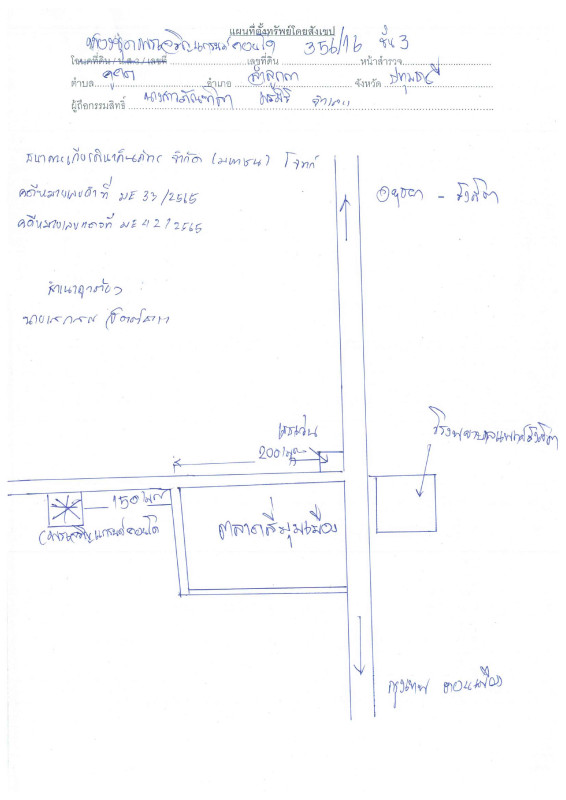 แผนที่ตั้งทรัพย์โดยสังเขป
ห้องชุด เพรสเจริญแกรนด์คอนโด 356/16 ชั้น 3
โฉนดที่ดิน / น.ส.3 / เลขที่ เลขที่ดิน หน้าสำรวจ
ตำบล คูคต อำเภอ ลำลูกกา จังหวัด ปทุมธานี
ผู้ถือกรรมสิทธิ์ จำเลย
ธนาคารเกียรตินาคินภัทร จำกัด (มหาชน) โจทก์
คดีหมายเลขดำที่ ผบE 33/2565
คดีหมายเลขแดงที่ ผบE 42/2565
อยุธยา - รังสิต
200 เมตร
โรงพยาบาลแพทย์รังสิต
150 เมตร
ตลาดสี่มุมเมือง
แกรนด์คอนโด
กรุงเทพ ดอนเมือง